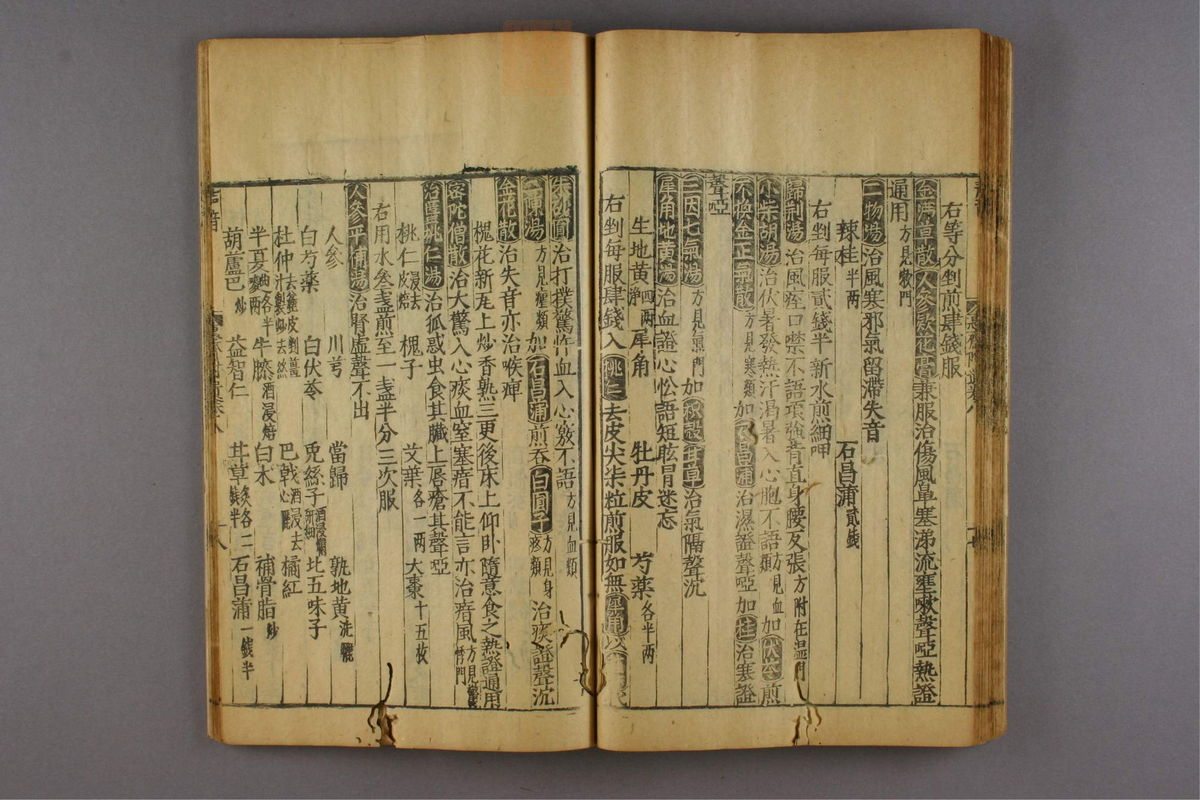 右等分剉煎肆錢服
金沸草散 人參款花膏兼服治傷風單塞涕流壅嗽聲啞熱證
通用 方見嗽門
二物湯 治風寒邪氣留滯失音
辣桂 半兩 石昌蒲 貳錢
右剉每服貳錢半新水煎細呷
歸荊湯 治風痙口噤不語項強背直身腰反張 方附在溫門
小柴胡湯 治伏暑發熱汗渴暑入心胞不語 方見血類 加 伏苓 煎
不換金正氣散 方見寒類 加 石昌蒲 治濕證聲啞加 桂 治寒證
聲啞
三因七氣湯 方見氣門 加 枳殼 甘草 治氣隔聲沉
犀角地黃湯 治血證心忪語短眩冒迷忘
生地黃 淨四兩 犀角 牡丹皮 芍藥 各半兩
右剉每服肆錢入 桃仁 去皮尖柒粒煎服如無 犀 用
治打撲驚忤血入心竅不語 方見血類
二陳湯 方見瘧類 加 石昌蒲 煎吞 白圓子 方見身疼類 治痰證聲沉
金花散 治失音亦治喉痺
槐花新瓦上炒香熟三更後床上仰卧隨意食之熱證通用
密陀僧散 治大驚入心痰血窒塞瘖不能言亦治瘖風 方見驚悸門
治𧌒桃仁湯 治狐惑虫食其臟上唇瘡其聲啞
桃仁 浸去皮焙 槐子 艾葉 各一兩 大棗 十五枚
右用水叁盞煎至一盞半分三次服
人參平補湯 治腎虛聲不出
人參 川芎 當歸 熟地黃 洗曬
白芍藥 白伏苓 兎絲子 酒浸爛研細 北五味子
杜仲 去麤皮剉薑汁製炒去絲 巴戟 酒浸去心曬 橘紅
半夏麴 各半兩 牛膝 酒浸焙 白朮 補骨脂 炒
葫蘆巴 炒 益智仁 甘草 炙各二錢半 石昌蒲 一錢半